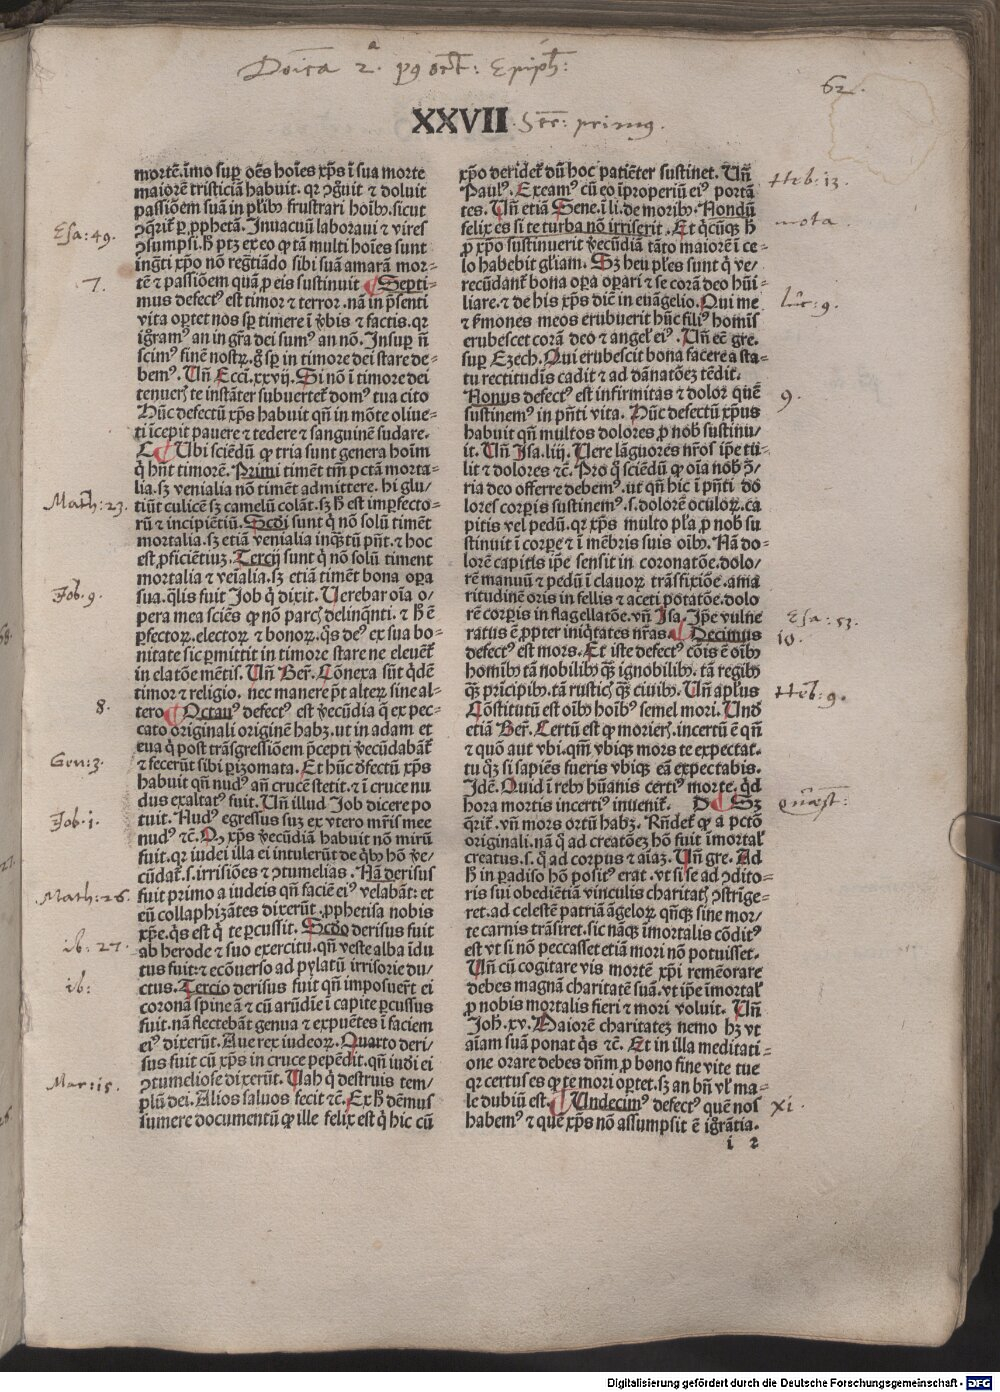 Do͞ica 2ª. p9 oct: Epiph:
62.
XXVII. Ser: prim9.
mortē. īmo suꝑ oēs hoīes xp̄s ī sua morte
maiorē tristiciā habuit. qꝛ ꝯgͥuit ⁊ doluit
passiōem suā in pl̄ibꝰ frustrari hoībꝰ. sicut
ꝯq̄rit᷑ ꝑ ꝓphetā. Inuacuū laboraui ⁊ vires
ꝯsumpsi. h̄ ptꝫ ex eo ꝙ tā multi hoīes sunt
ingͣti xp̄o nō regͣtiādo sibi suā amarā mor⸗
tē ⁊ passiōem quā ꝓ eis sustinuit ¶ Septi⸗
mus defectꝰ est timor ⁊ terror. nā in p̄senti
vita oꝑtet nos sꝑ timere ī ꝟbis ⁊ factis. qꝛ
igͣramꝰ an in gr̄a dei sumꝰ an nō. Insuꝑ n̄
scimꝰ finē nostꝝ. gͦ sꝑ in timore dei stare de⸗
bemꝰ. Vn̄ Ecci. xxvij. Si nō ī timore dei
tenueris te instāter subuertet᷑ domꝰ tua cito
Hūc defectū xp̄s habuit qn̄ in mōte oliue⸗
ti īcepit pauere ⁊ tedere ⁊ sanguinē sudare.
C ¶ Vbi sciēdū ꝙ tria sunt genera hoīm
q̄ hn̄t timorē. Primi timēt tm̄ pctā morta⸗
lia. sꝫ venialia nō timēt admittere. hi glu/
tiūt culicē sꝫ camelū colāt. sꝫ h̄ est imꝑfecto⸗
rū ⁊ incipiētiū. Scdi sunt q̄ nō solū timēt
mortalia. sꝫ etiā venialia inqͣꝫtū pn̄t. ⁊ hoc
est ꝓficiētiuꝫ. Tercij sunt q̄ nō solū timent
mortalia ⁊ veīalia. sꝫ etiā timēt bona oꝑa
sua. qͣlis fuit Job q̄ dixit. Verebar oīa o/
pera mea sciēs ꝙ nō parcis delinqn̄ti. ⁊ h̄ ē
ꝑfectoꝝ. electoꝝ ⁊ bonoꝝ. qͦs deꝰ ex sua bo⸗
nitate sic ꝑmittit in timore stare ne eleuēt᷑
in elatōe mētis. Vn̄ Ber̄. Cōnexa sūt qͥdē
timor ⁊ religio. nec manere pt̄ alteꝝ sine al⸗
tero ¶ Octauꝰ defectꝰ est ꝟecūdia q̄ ex pec⸗
cato originali originē habꝫ. ut in adam et
eua q̄ post trāsgressiōem p̄cepti ꝟecūdabāt᷑
⁊ fecerūt sibi ꝑizomata. Et hūc defectū xp̄s
habuit qn̄ nudꝰ an̄ crucē stetit. ⁊ ī cruce nu
dus exaltatꝰ fuit. Vn̄ illud Job dicere po
tuit. Nudꝰ egressus suꝫ ex vtero mr̄is mee
nudꝰ ⁊c. Qꝫ xp̄s ꝟecūdiā habuit nō mirū
fuit. qꝛ iudei illa ei intulerūt de qͥbꝰ hō ꝟe/
cūdat᷑. s. irrisiōes ⁊ ꝯtumelias. Nā derisus
fuit primo a iudeis qn̄ faciē eiꝰ velabāt: et
eū collaphizātes dixerūt. ꝓphetisa nobis
xp̄e. qͥs est q̄ te ꝑcussit. Scdo derisus fuit
ab herode ⁊ suo exercitu. qn̄ veste alba īdu
tus fuit: ⁊ ecōuerso ad pylatū irrisorie du/
ctus. Tercio derisus fuit qn̄ imposuer̄t ei
coronā spineā ⁊ cū arūdie ī capite ꝑcussus
fuit. nā flectebāt genua ⁊ expuētes ī faciem
eiꝰ dixerūt. Aue rex iudeoꝝ. Quarto deri/
sus fuit cū xp̄s in cruce pepēdit. qn̄ iudi ei
ꝯtumeliose dixerūt. Vah q̄ destruis tem/
plū dei. Alios saluos fecit ⁊c. Ex h̄ demꝰus
sumere documentū ꝙ ille felix est q̄ hic cū
xp̄o deridet᷑ dū hoc patiēter sustinet. Vn̄
Paulꝰ. Exeamꝰ cū eo īproperiū eiꝰ portā
tes. Vn̄ etiā Sene. ī li. de moribꝰ. Nondū
felix es si te turba nō irriserit. Et qͥcūqꝫ h̄
ꝓ xp̄o sustinuerit ꝟecūdiā tāto maiorē ī ce⸗
lo habebit gl̄iam. Sꝫ heu pl̄es sunt q̄ ve/
recūdant᷑ bona oꝑa oꝑari ⁊ se corā deo hūi⸗
liare. ⁊ de his xp̄s diē in euāgelio. Qui me
⁊ ẜmones meos erubuerit hūc filiꝰ homīs
erubescet corā deo ⁊ angel᷑ eiꝰ. Vn̄ eē gre.
suꝑ Ezech. Qui erubescit bona facere a sta⸗
tu rectitudīs cadit ⁊ ad dānatōeꝫ tēdit.
Nonus defectꝰ est infirmitas ⁊ dolor quē
sustinemꝰ in pn̄ti vita. Hūc defectū xp̄us
habuit qn̄ multos dolores ꝓ nobꝭ sustinu/
it. Vn̄ Isa. liij. Vere lāguores nr̄os ip̄e tu⸗
lit ⁊ dolores ⁊c. Pro q̄ sciēdū ꝙ oīa nobꝭ ꝯ̄/
ria deo offerre debemꝰ. ut qn̄ hic ī pn̄ti do
lores corꝑis sustinemꝰ. s. dolorē oculoꝝ. ca
pitis vel pedū. qꝛ xp̄s multo pl̄a ꝓ nobꝭ su
stinuit ī corꝑe ⁊ ī mēbris suis oībꝰ. Nā do⸗
lorē capitis ip̄e sensit in coronatōe. dolo/
rē manuū ⁊ pedū ī clauoꝝ trāsfixiōe. ama
ritudinē oris in fellis ⁊ aceti potatōe. dolo
rē corꝑis in flagellatōe. vn̄ Isa. Ip̄e vulne
ratus ē ꝓpter iniqͥtates nr̄as. ¶ Decimus
defectꝰ est mors. Et iste defectꝰ cōis ē oībꝰ
homībꝰ tā nobilibꝰ qͣꝫ ignobilibꝰ. tā regibꝰ
qͣꝫ prīcipibꝰ. tā rusticis qͣꝫ ciuibꝰ. Vn̄ apl̄us
Cōstitutū est oībꝰ hoībꝰ semel mori. Vnd̄
etiā Ber̄. Certū est ꝙ morieris. incertū ē qn̄
⁊ quō aut vbi. qm̄ vbiqꝫ mors te expectat.
tu qͦꝫ si sapiēs fueris vbiqꝫ eā expectabis.
Idē. Quid ī rebꝰ hūanis certiꝰ morte. qͥd
hora mortis incertiꝰ inuenit᷑. D ¶ Sꝫ
q̄rit᷑. vn̄ mors ortū habꝫ. Rn̄det᷑ ꝙ a pctō
originali. nā q̄ ad creatōeꝫ hō fuit īmortal᷑
creatus. s. q̄ ad corpus ⁊ aīaꝫ. Vn̄ gre. Ad
h̄ in ꝑadiso hō positꝰ erat. vt si se ad ꝯdito⸗
ris sui obediētiā vinculis charitatis ꝯstrīge⸗
ret. ad celestē patriā āgeloꝝ qn̄qꝫ sine mor/
te carnis trāsiret. sic nāqꝫ īmortalis cōditꝰ
est vt si nō peccasset etiā mori nō potuisset.
Vn̄ cū cogitare vis mortē xp̄i remēorare
debes magnā charitatē suā. vt ip̄e īmortal᷑
ꝓ nobis mortalis fieri ⁊ mori voluit. Vn̄
Joh. xv. Maiorē charitateꝫ nemo hꝫ vt
aīam suā ponat qͥs ⁊c. Et in illa meditati⸗
one orare debes dn̄m ꝓ bono fine vite tue
qꝛ certus es ꝙ te mori oꝑtet. sꝫ an bn̄ vl̓ ma⸗
le dubiū est. ¶ Vndecimꝰ defectꝰ quē nos
habemꝰ ⁊ quē xp̄s nō assumpsit ē igͣrātia.
i 2
Esa: 49.
7.
Math: 23.
Job. 9.
8.
Gen: 3.
Job. 1.
Math: 26.
ib: 27.
ib:
Mar: 15.
Heb: 13.
nota.
Luc: 9.
9.
Esa: 53.
10.
Heb: 9.
Quæst:
xi.
Digitalisierung gefördert durch die Deutsche Forschungsgemeinschaft - DFG